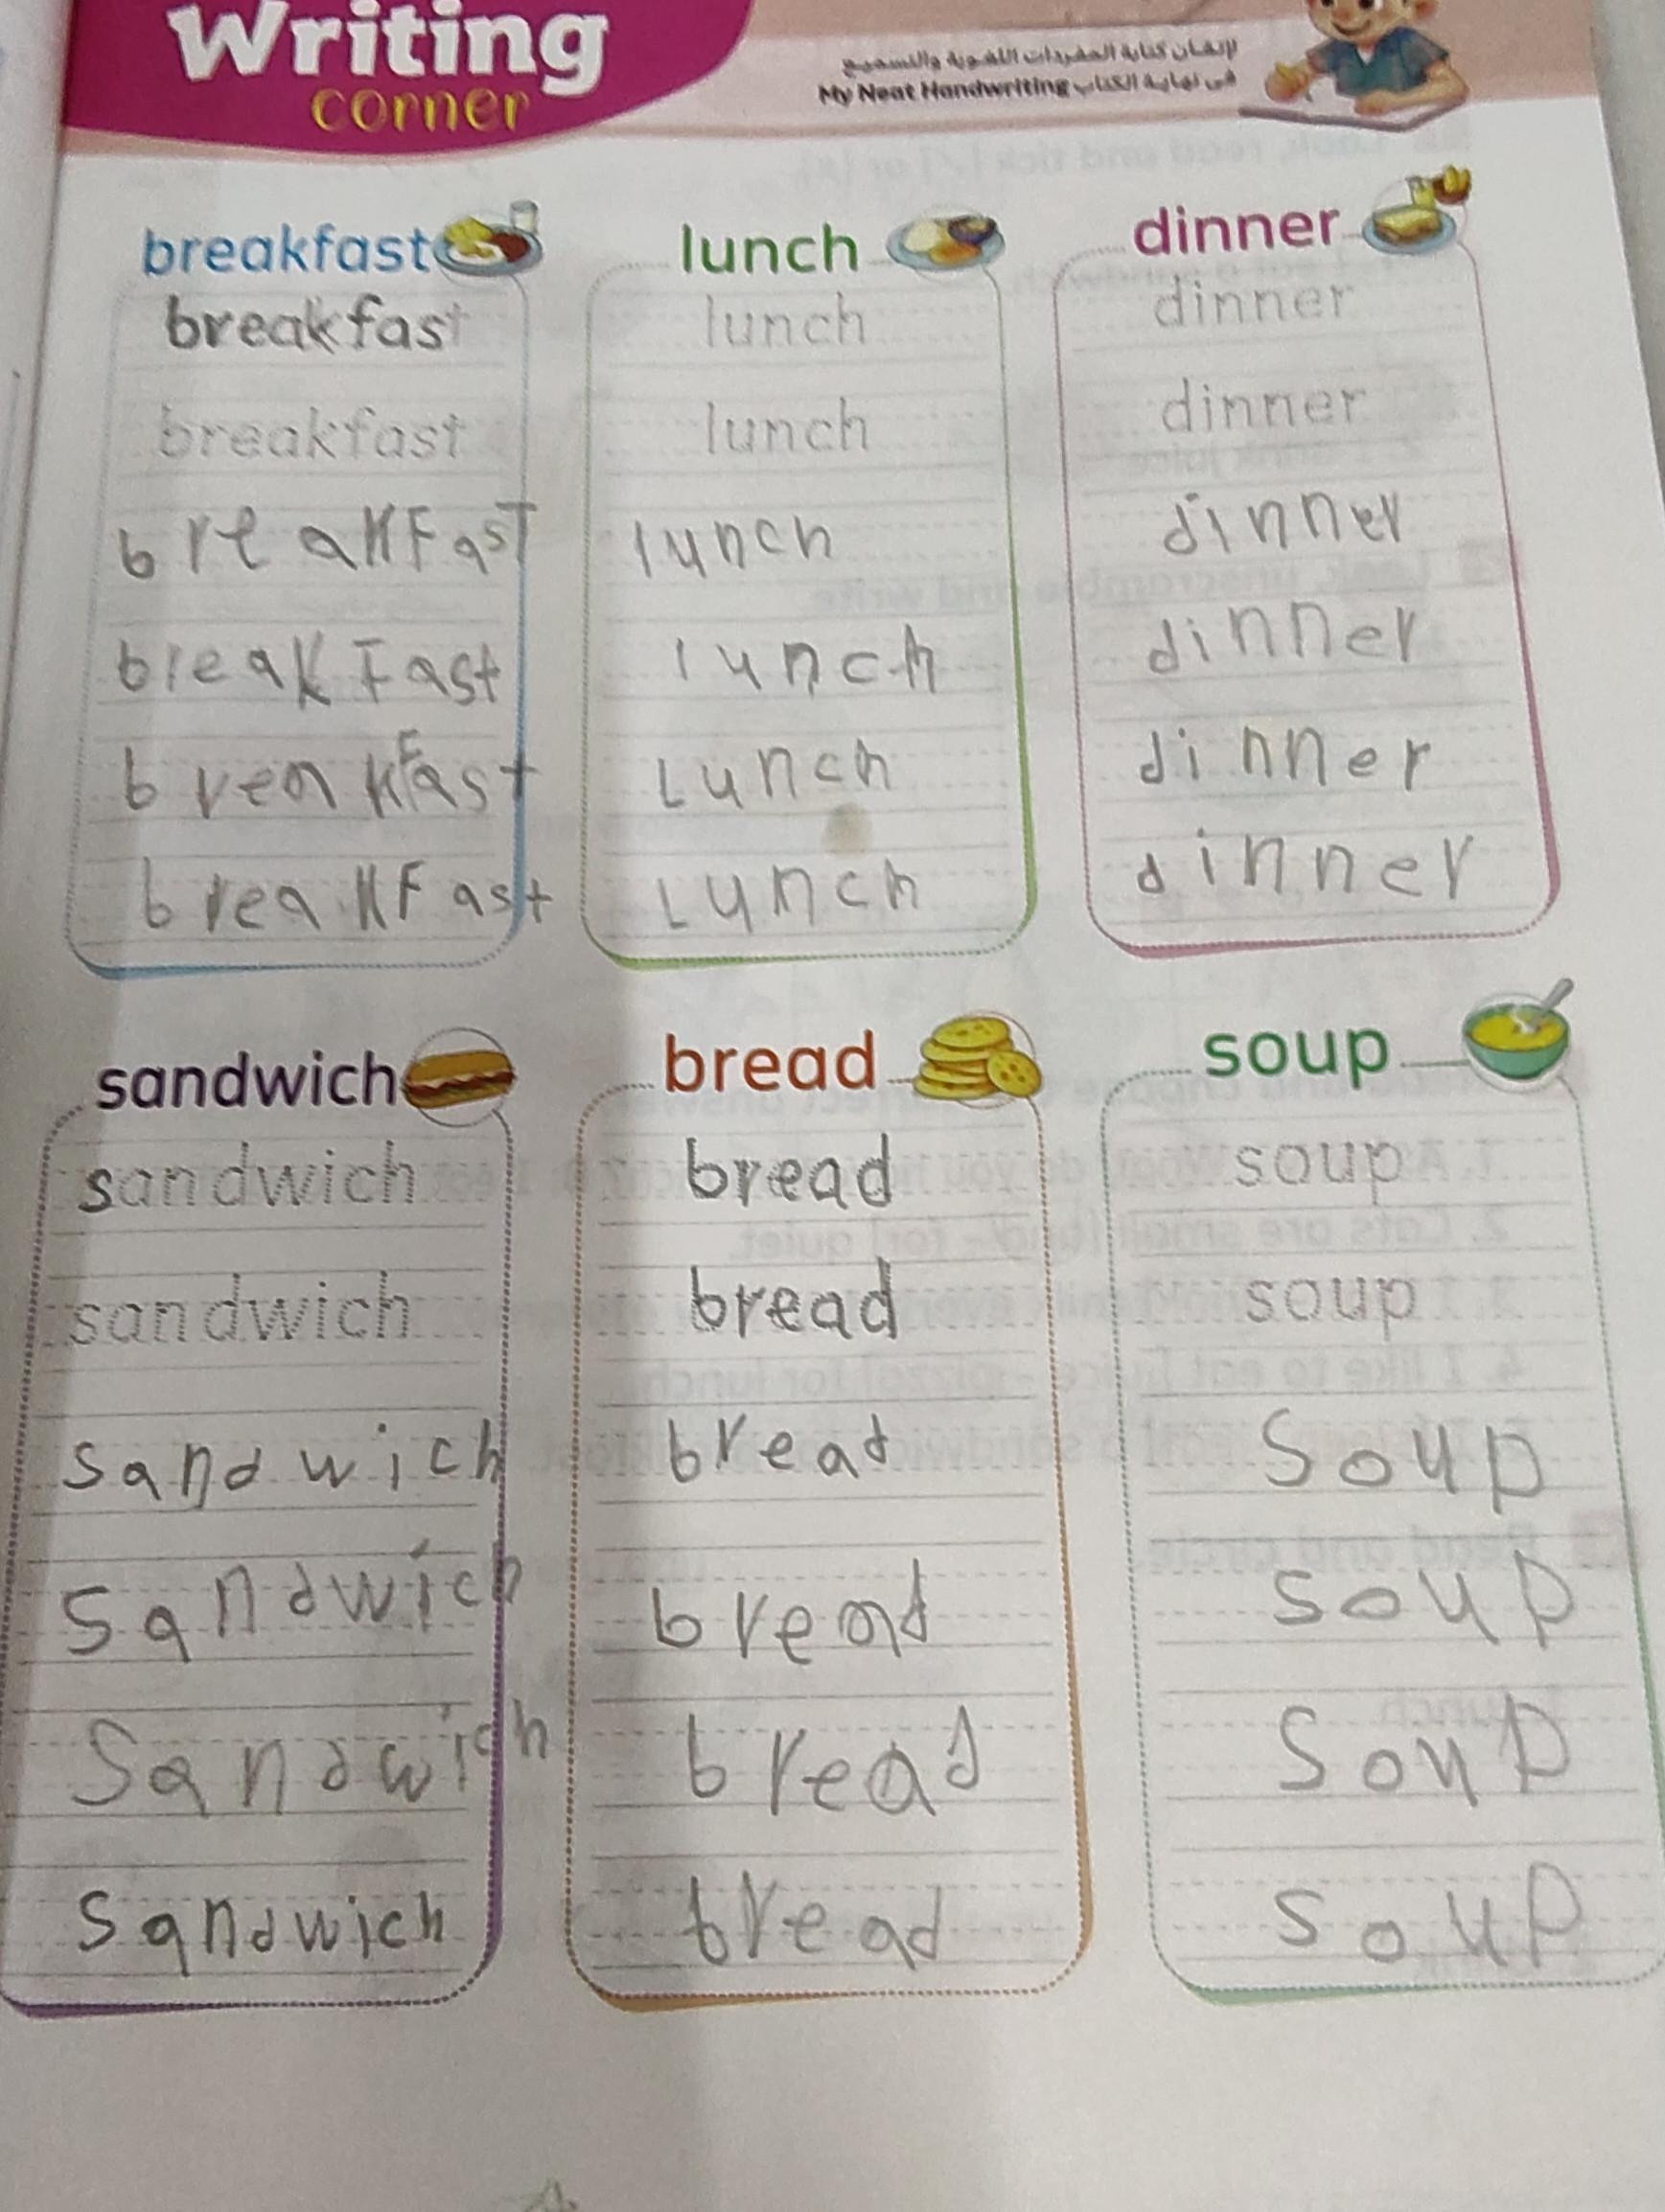 Writing
corner
لإتقان كتابة المفردات اللغوية والتسميع
في نهاية الكتاب My Neat Handwriting
breakfast
breakfast
breakfast
breakFasT
breakFast
breakFast
breakFast
lunch
lunch
lunch
lunch
lunch
Lunch
Lunch
dinner
dinner
dinner
dinner
dinner
dinner
dinner
sandwich
sandwich
sandwich
sandwich
sandwich
Sandwich
Sandwich
bread
bread
bread
bread
bread
bread
bread
soup
soup
soup
Soup
soup
Soup
soup